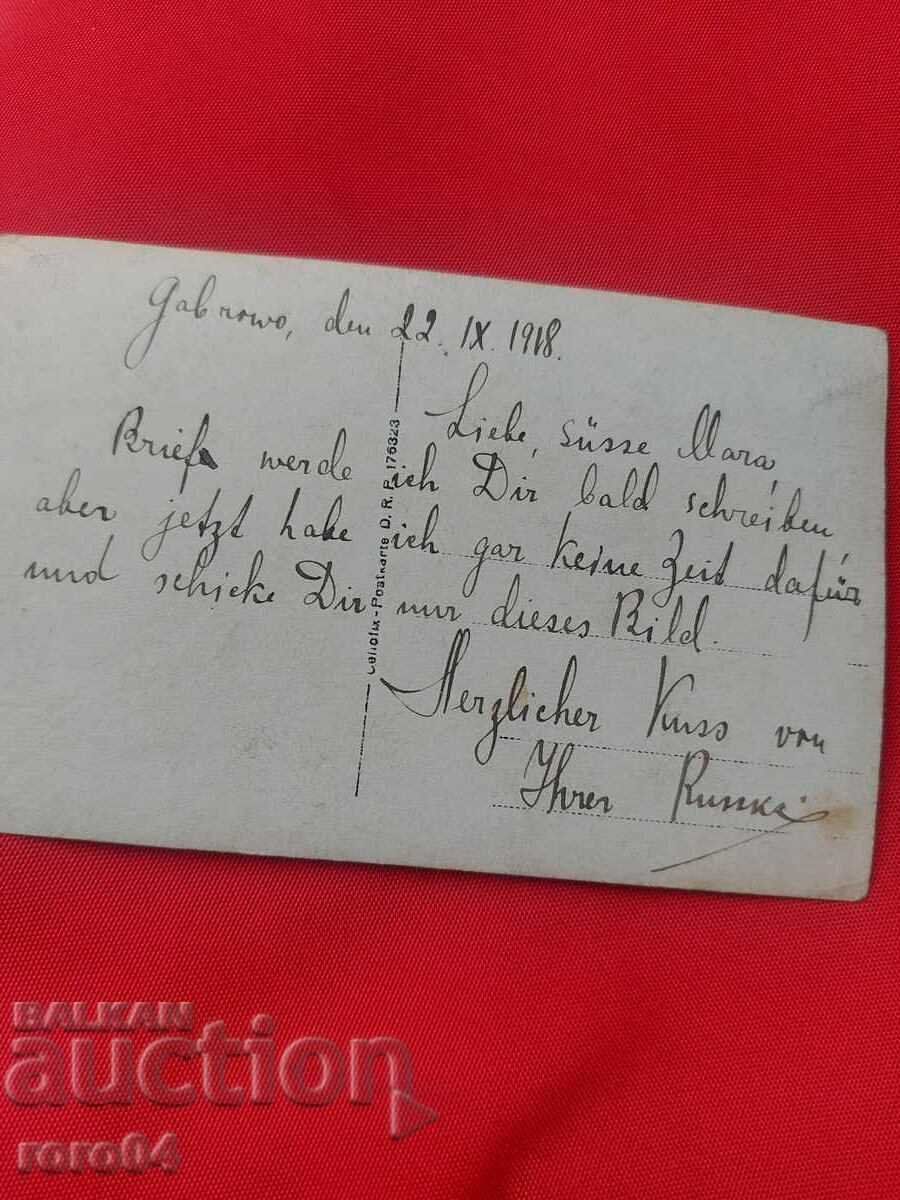 Gabrowo, den 22. IX. 1918.
Liebe, süsse Mara,
Brief werde ich Dir bald schreiben
aber jetzt habe ich gar keine Zeit dafür
und schicke Dir nur dieses Bild.
Herzlicher Kuss von
Ihrer
Cellofix-Postkarte D. R. P. 176323
BALKAN
auction
roro04